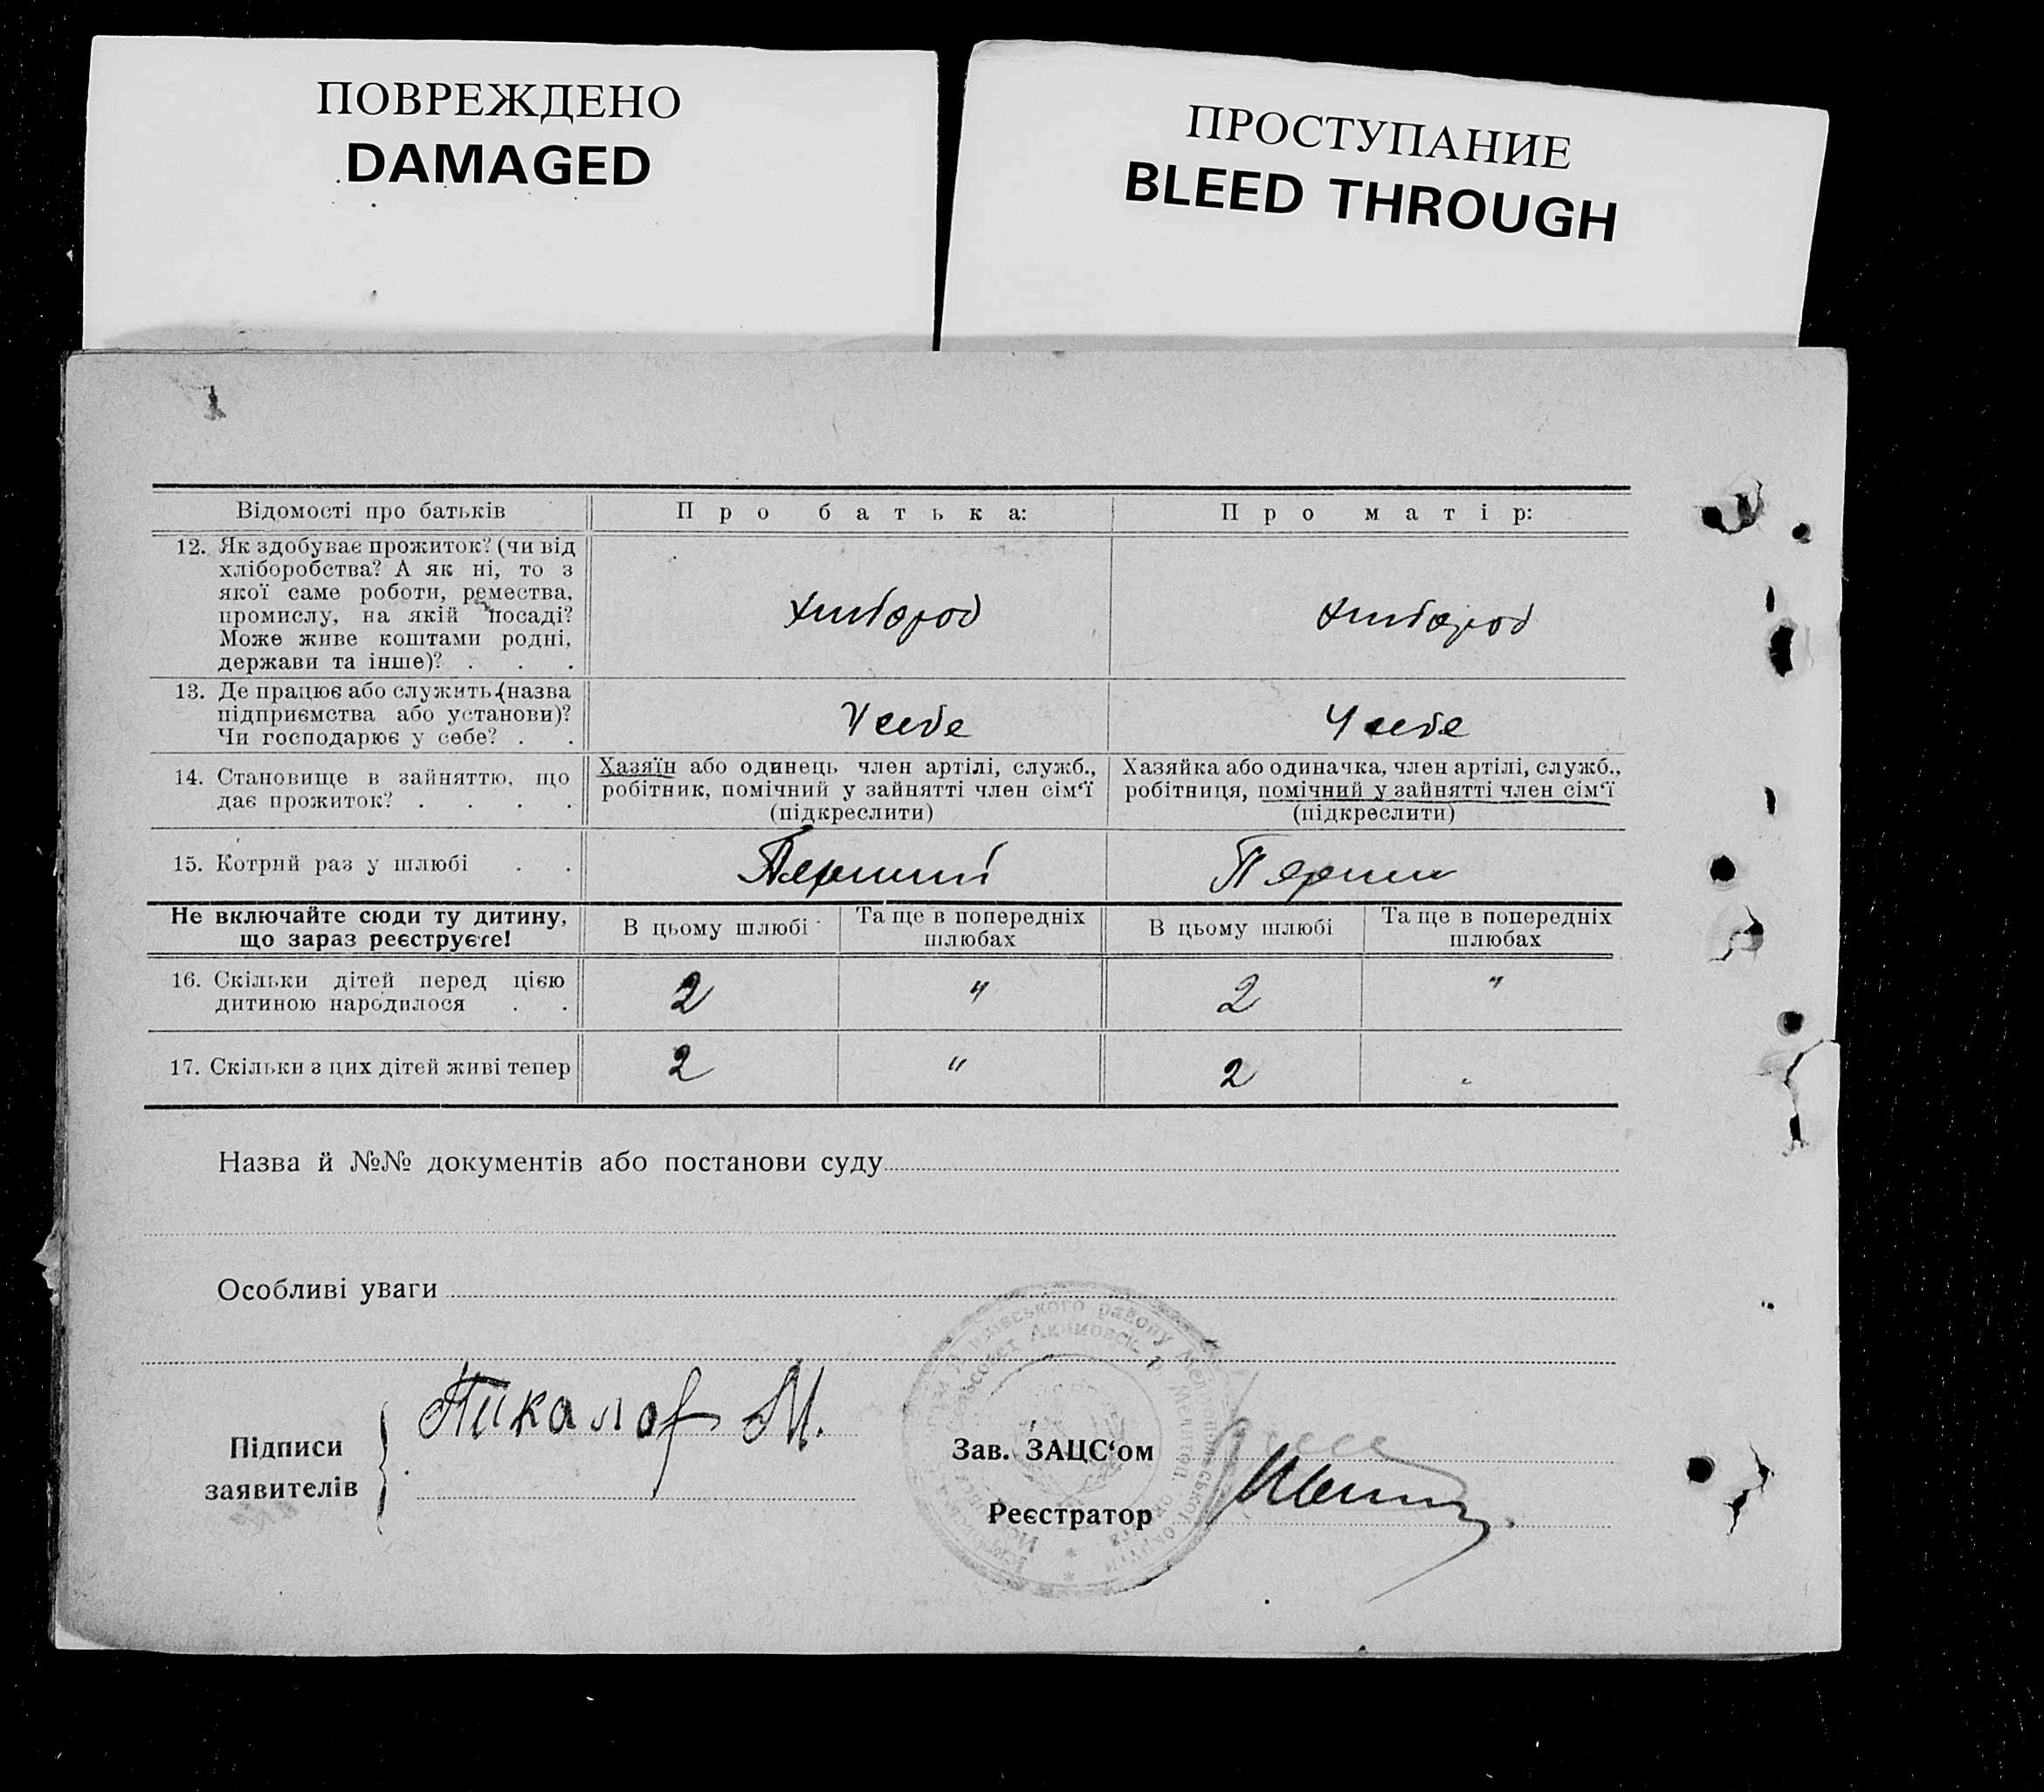 ПОВРЕЖДЕНО
DAMAGED
ПРОСТУПАНИЕ
BLEED THROUGH
Відомості про батьків
Про батька:
Про матір:
12. Як здобуває прожиток? (чи від
хліборобства? А як ні, то з
якої саме роботи, ремества,
промислу, на якій посаді?
Може живе коштами родні,
держави та інше)? . . .
хлібороб
хлібороб
13. Де працює або служить (назва
підприємства або установи)?
Чи господарює у себе? . .
У себе
У себе
14. Становище в зайняттю, що
дає прожиток? . . . .
Хазяїн або одинець член артілі, служб.,
робітник, помічний у зайнятті член сім‘ї
(підкреслити)
Хазяйка або одиначка, член артілі, служб.,
робітниця, помічний у зайнятті член сім‘ї
(підкреслити)
15. Котрий раз у шлюбі . .
Перший
Перши
Не включайте сюди ту дитину,
що зараз реєструєте!
В цьому шлюбі
Та ще в попередніх
шлюбах
В цьому шлюбі
Та ще в попередніх
шлюбах
16. Скільки дітей перед цією
дитиною народилося . .
2
"
2
"
17. Скільки з цих дітей живі тепер
2
"
2
Назва й №№ документів або постанови суду
Особливі уваги
Підписи
заявителів
Пикалов М.
Зав. ЗАЦС‘ом
Реєстратор